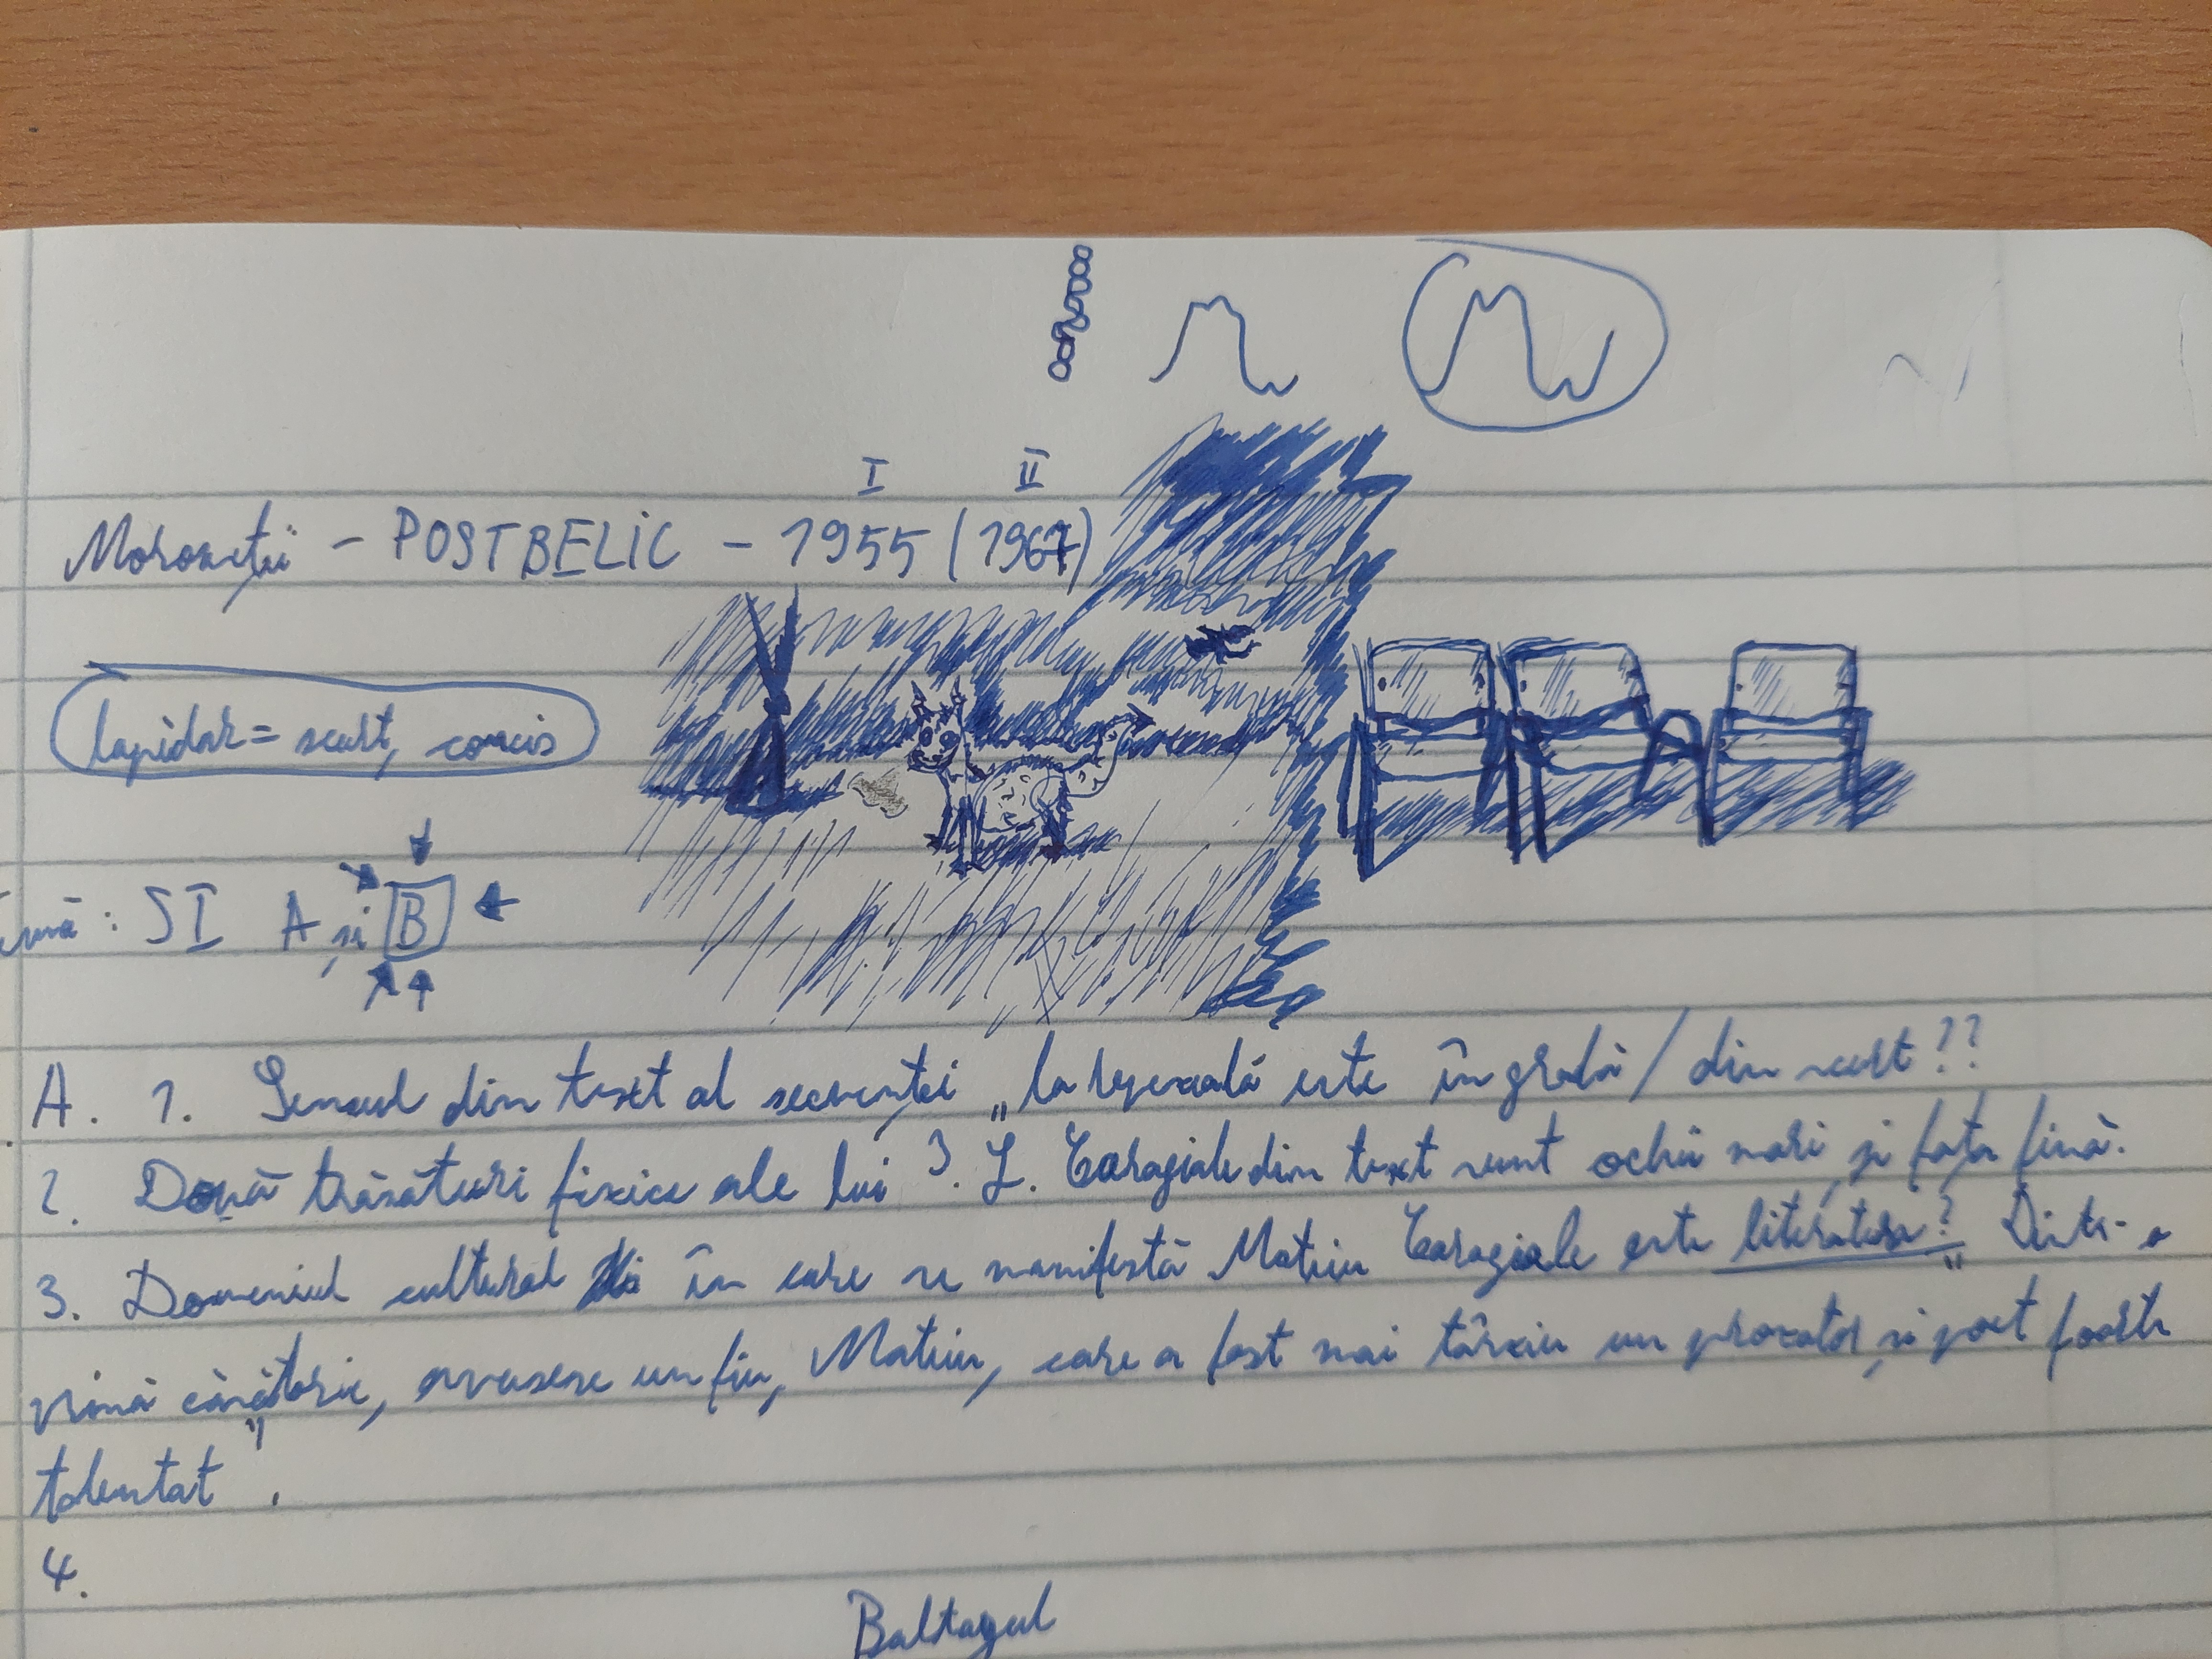 I II
Moromeții - POSTBELIC - 1955 (1967)
lapidar = scurt, concis
temă: SI A și B
A. 1. Sensul din text al secvenței „la repezeală este în grabă / din scurt??
2. Două trăsături fizice ale lui I. L. Caragiale din text sunt ochii mari și fața fină.
3. Domeniul cultural în care se manifestă Mateiu Caragiale este literatura? „Dintr-o
primă căsătorie, avusese un fiu, Mateiu, care a fost mai târziu un prozator și poet foarte
talentat".
4.
Baltagul